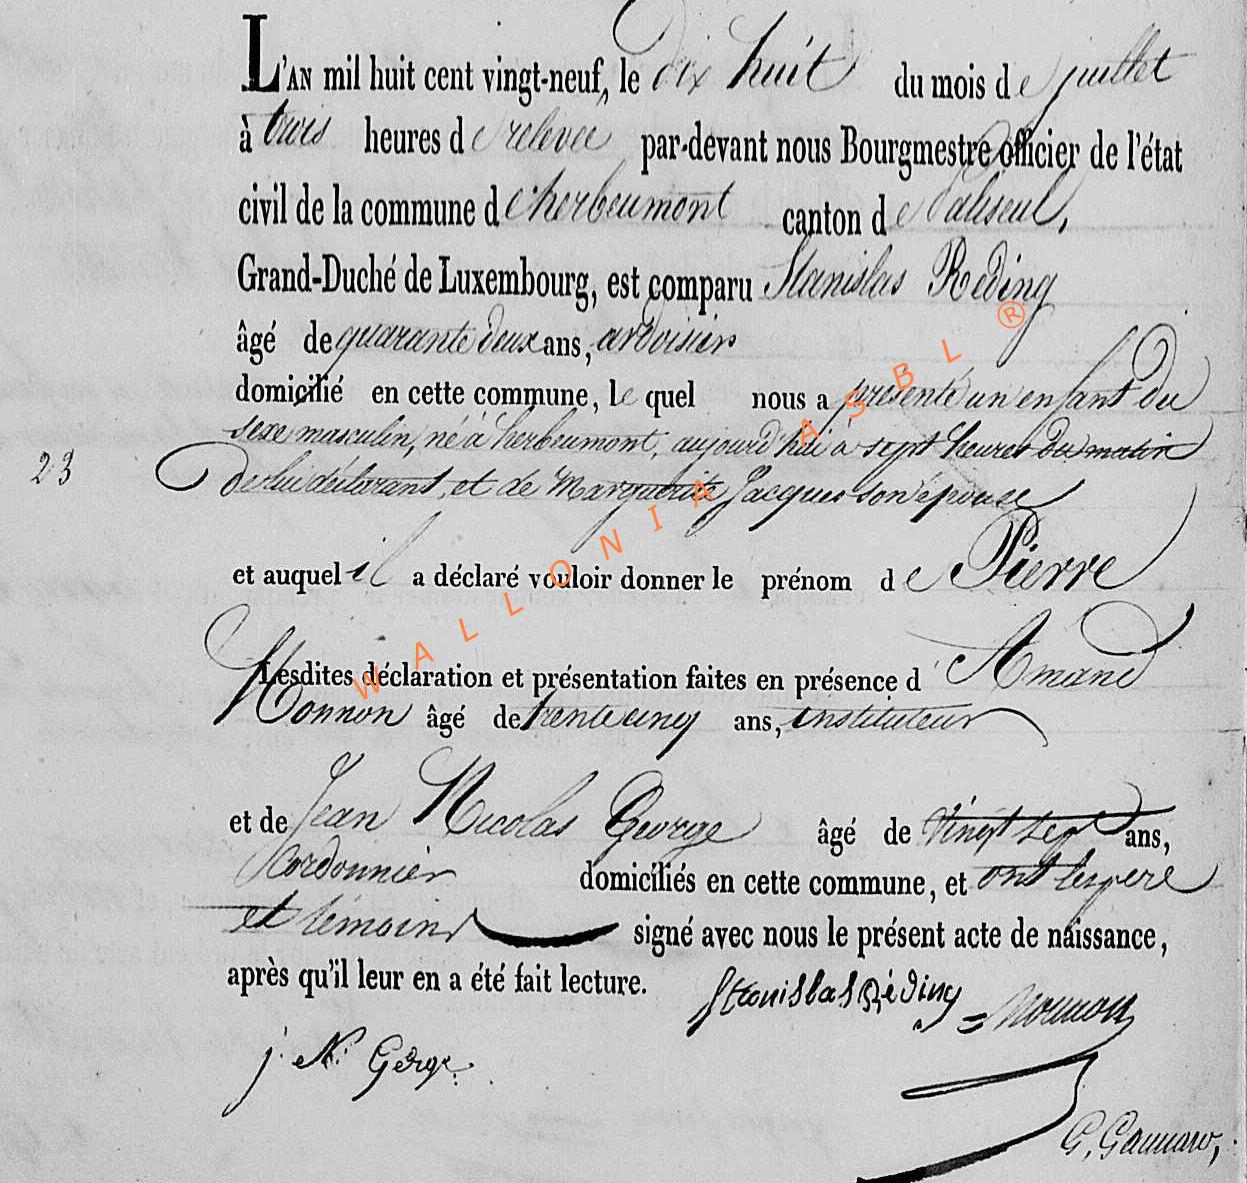 L'AN mil huit cent vingt-neuf, le dix huit du mois de juillet
à trois heures de relevée par-devant nous Bourgmestre officier de l'état
civil de la commune d'herbeumont canton de Paliseul,
Grand-Duché de Luxembourg, est comparu Stanislas Réding
âgé de quarante deux ans, ardoisier
domicilié en cette commune, le quel nous a présenté un enfant du
sexe masculin, né à herbeumont, aujourd'hui à sept heures du matin
23 de lui déclarant, et de Marguerite Jacques son épouse
et auquel il a déclaré vouloir donner le prénom de Pierre
Lesdites déclaration et présentation faites en présence d'Amand
Monnon âgé de trente cinq ans, instituteur
et de Jean Nicolas George âgé de vingt sept ans,
Cordonnier domiciliés en cette commune, et ont les père
et témoins signé avec nous le présent acte de naissance,
après qu'il leur en a été fait lecture.
Stanislas Réding = Monnon
j. N. Gérge
WALLONIA ASBL ®